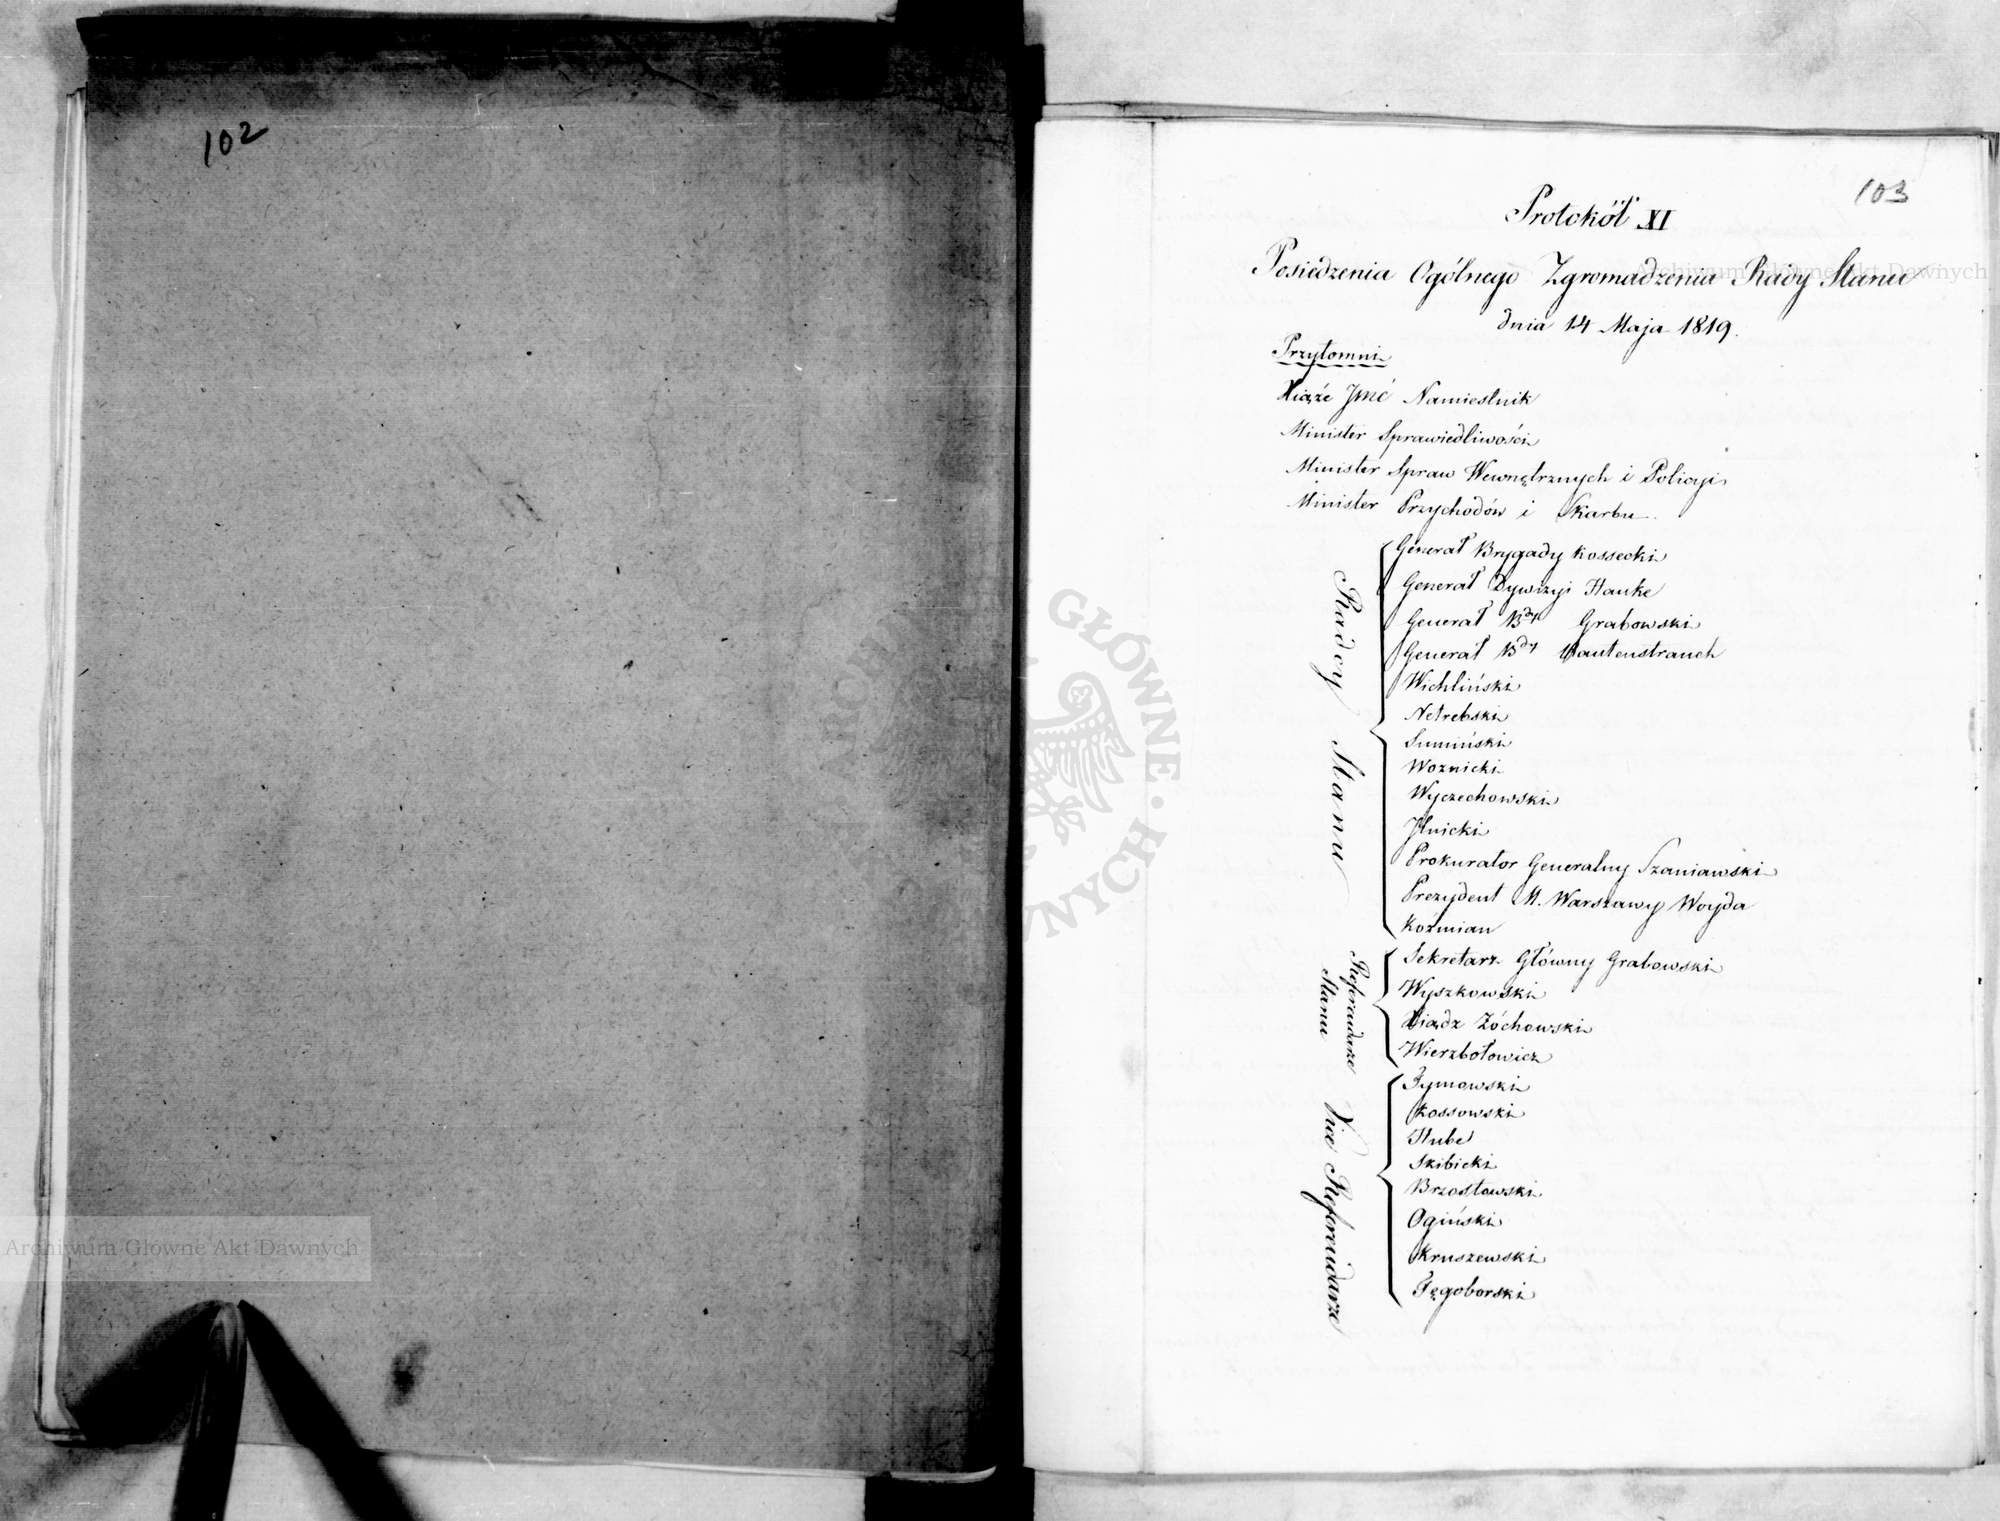 102
103
Protokół XI
Posiedzenia Ogólnego Zgromadzenia Rady Stanu
dnia 14 Maja 1819.
Przytomni
Xiąże Jmć Namiestnik
Minister Sprawiedliwości
Minister Spraw Wewnętrznych i Policyi
Minister Przychodów i Skarbu.
Radcy Stanu
Generał Brygady Kossecki
Generał Dywizyi Hauke
Generał Bdy Grabowski
Generał Bdy Rautenstrauch
Wichliński
Netrebski
Sumiński
Woznicki
Wyczechowski
Ilnicki
Prokurator Generalny Szaniawski
Prezydent M. Warszawy Woyda
Koźmian
Referendarze
Stanu
Sekretarz Główny Grabowski
Wyszkowski
Xiądz Żóchowski
Wierzbołowicz
Vice Referendarze
Tymowski
Kossowski
Hube
Skibicki
Brzostowski
Ogiński
Kruszewski
Tęgoborski
Archiwum Główne Akt Dawnych
Archiwum Główne Akt Dawnych
ARCHIWUM GŁÓWNE AKT DAWNYCH